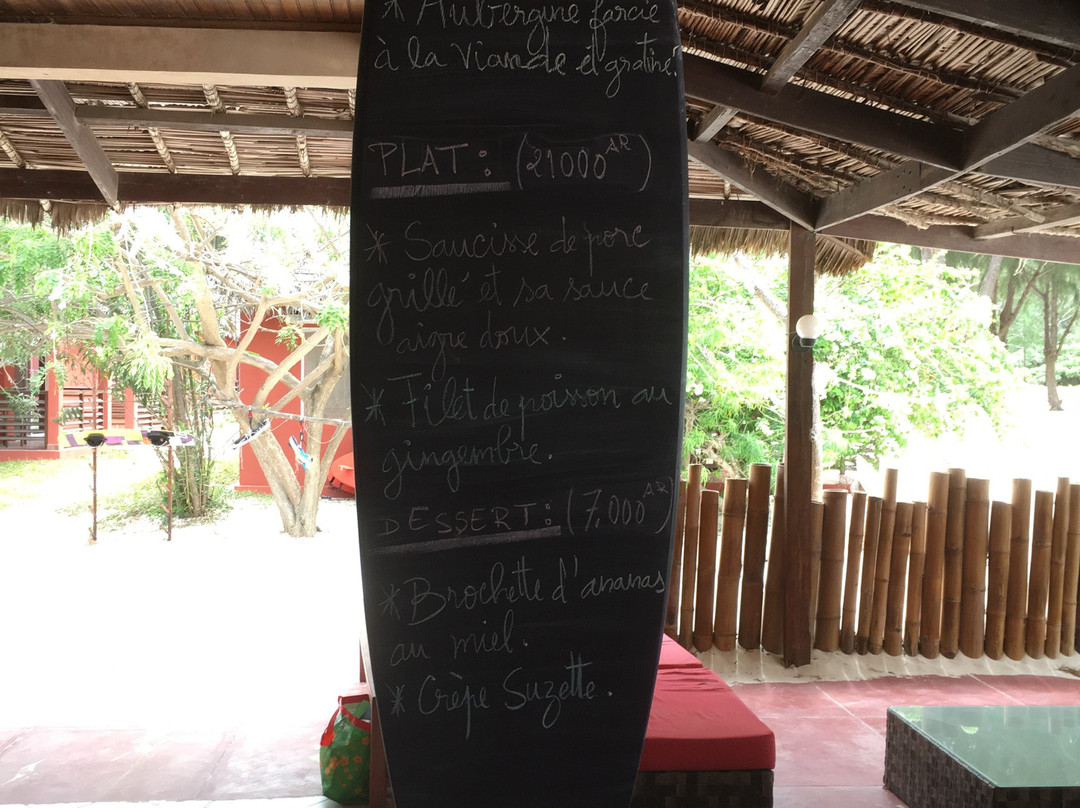 * Aubergine farcie
à la viande et gratiné.
PLAT : (21000 AR)
* Saucisse de porc
grillé et sa sauce
aigre doux.
* Filet de poisson au
gingembre.
DESSERT : (7.000 AR)
* Brochette d'ananas
au miel.
* Crèpe Suzette.